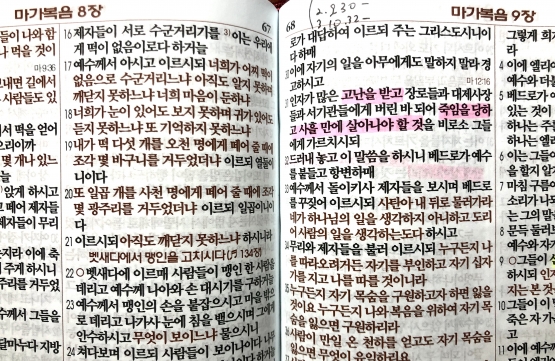 마가복음 8장
67
들이 나와 함
나 먹을 것이
막 9:36
보내면 길에서
사람들도 있
서 떡을 얻어
으리이까
몇 개나 있느
늘
앉게 하시고
떼어 주게 하시
제자들이 무리
지라 이에 축
주게 하시니
조각을 거두었
달마누다 지방
16 제자들이 서로 수군거리기를 3)이는 우리에
게 떡이 없음이로다 하거늘
17 예수께서 아시고 이르시되 너희가 어찌 떡이
없음으로 수군거리느냐 아직도 알지 못하며
깨닫지 못하느냐 너희 마음이 둔하냐
18 너희가 눈이 있어도 보지 못하며 귀가 있어도
듣지 못하느냐 또 기억하지 못하느냐
19 내가 떡 다섯 개를 오천 명에게 떼어 줄 때에
조각 몇 바구니를 거두었더냐 이르되 열둘이
니이다
20 또 일곱 개를 사천 명에게 떼어 줄 때에 조각
몇 광주리를 거두었더냐 이르되 일곱이니이
다
21 이르시되 아직도 깨닫지 못하느냐 하시니라
벳새다에서 맹인을 고치시다(♬134장)
22 ○벳새다에 이르매 사람들이 맹인 한 사람을
데리고 예수께 나아와 손 대시기를 구하거늘
23 예수께서 맹인의 손을 붙잡으시고 마을 밖으
로 데리고 나가사 눈에 침을 뱉으시며 그에게
안수하시고 무엇이 보이느냐 물으시니
24 쳐다보며 이르되 사람들이 보이나이다 나무
68
마가복음 9장
로가 대답하여 이르되 주는 그리스도시니이
다 하매
이에 자기의 일을 아무에게도 말하지 말라 경
고하시고
막 12:16
인자가 많은 고난을 받고 장로들과 대제사장
들과 서기관들에게 버린 바 되어 죽임을 당하
고 사흘 만에 살아나야 할 것을 비로소 그들
에게 가르치시되
드러내 놓고 이 말씀을 하시니 베드로가 예수
를 붙들고 항변하매
예수께서 돌이키사 제자들을 보시며 베드로
를 꾸짖어 이르시되 사탄아 내 뒤로 물러가라
네가 하나님의 일을 생각하지 아니하고 도리
어 사람의 일을 생각하는도다 하시고
무리와 제자들을 불러 이르시되 누구든지 나
를 따라오려거든 자기를 부인하고 자기 십자
가를 지고 나를 따를 것이니라
누구든지 자기 목숨을 구원하고자 하면 잃을
것이요 누구든지 나와 복음을 위하여 자기 목
숨을 잃으면 구원하리라
사람이 만일 온 천하를 얻고도 자기 목숨을
잃으면 무엇이 유익하리요